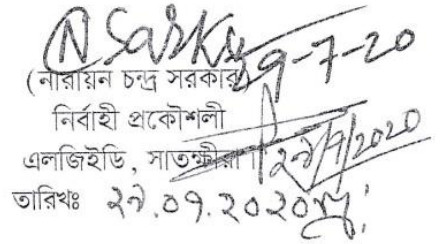 N Sarker 29-7-20
(নারায়ন চন্দ্র সরকার)
নির্বাহী প্রকৌশলী
এলজিইডি, সাতক্ষীরা। ২৯/৭/২০২০
তারিখঃ ২৯.০৭.২০২০